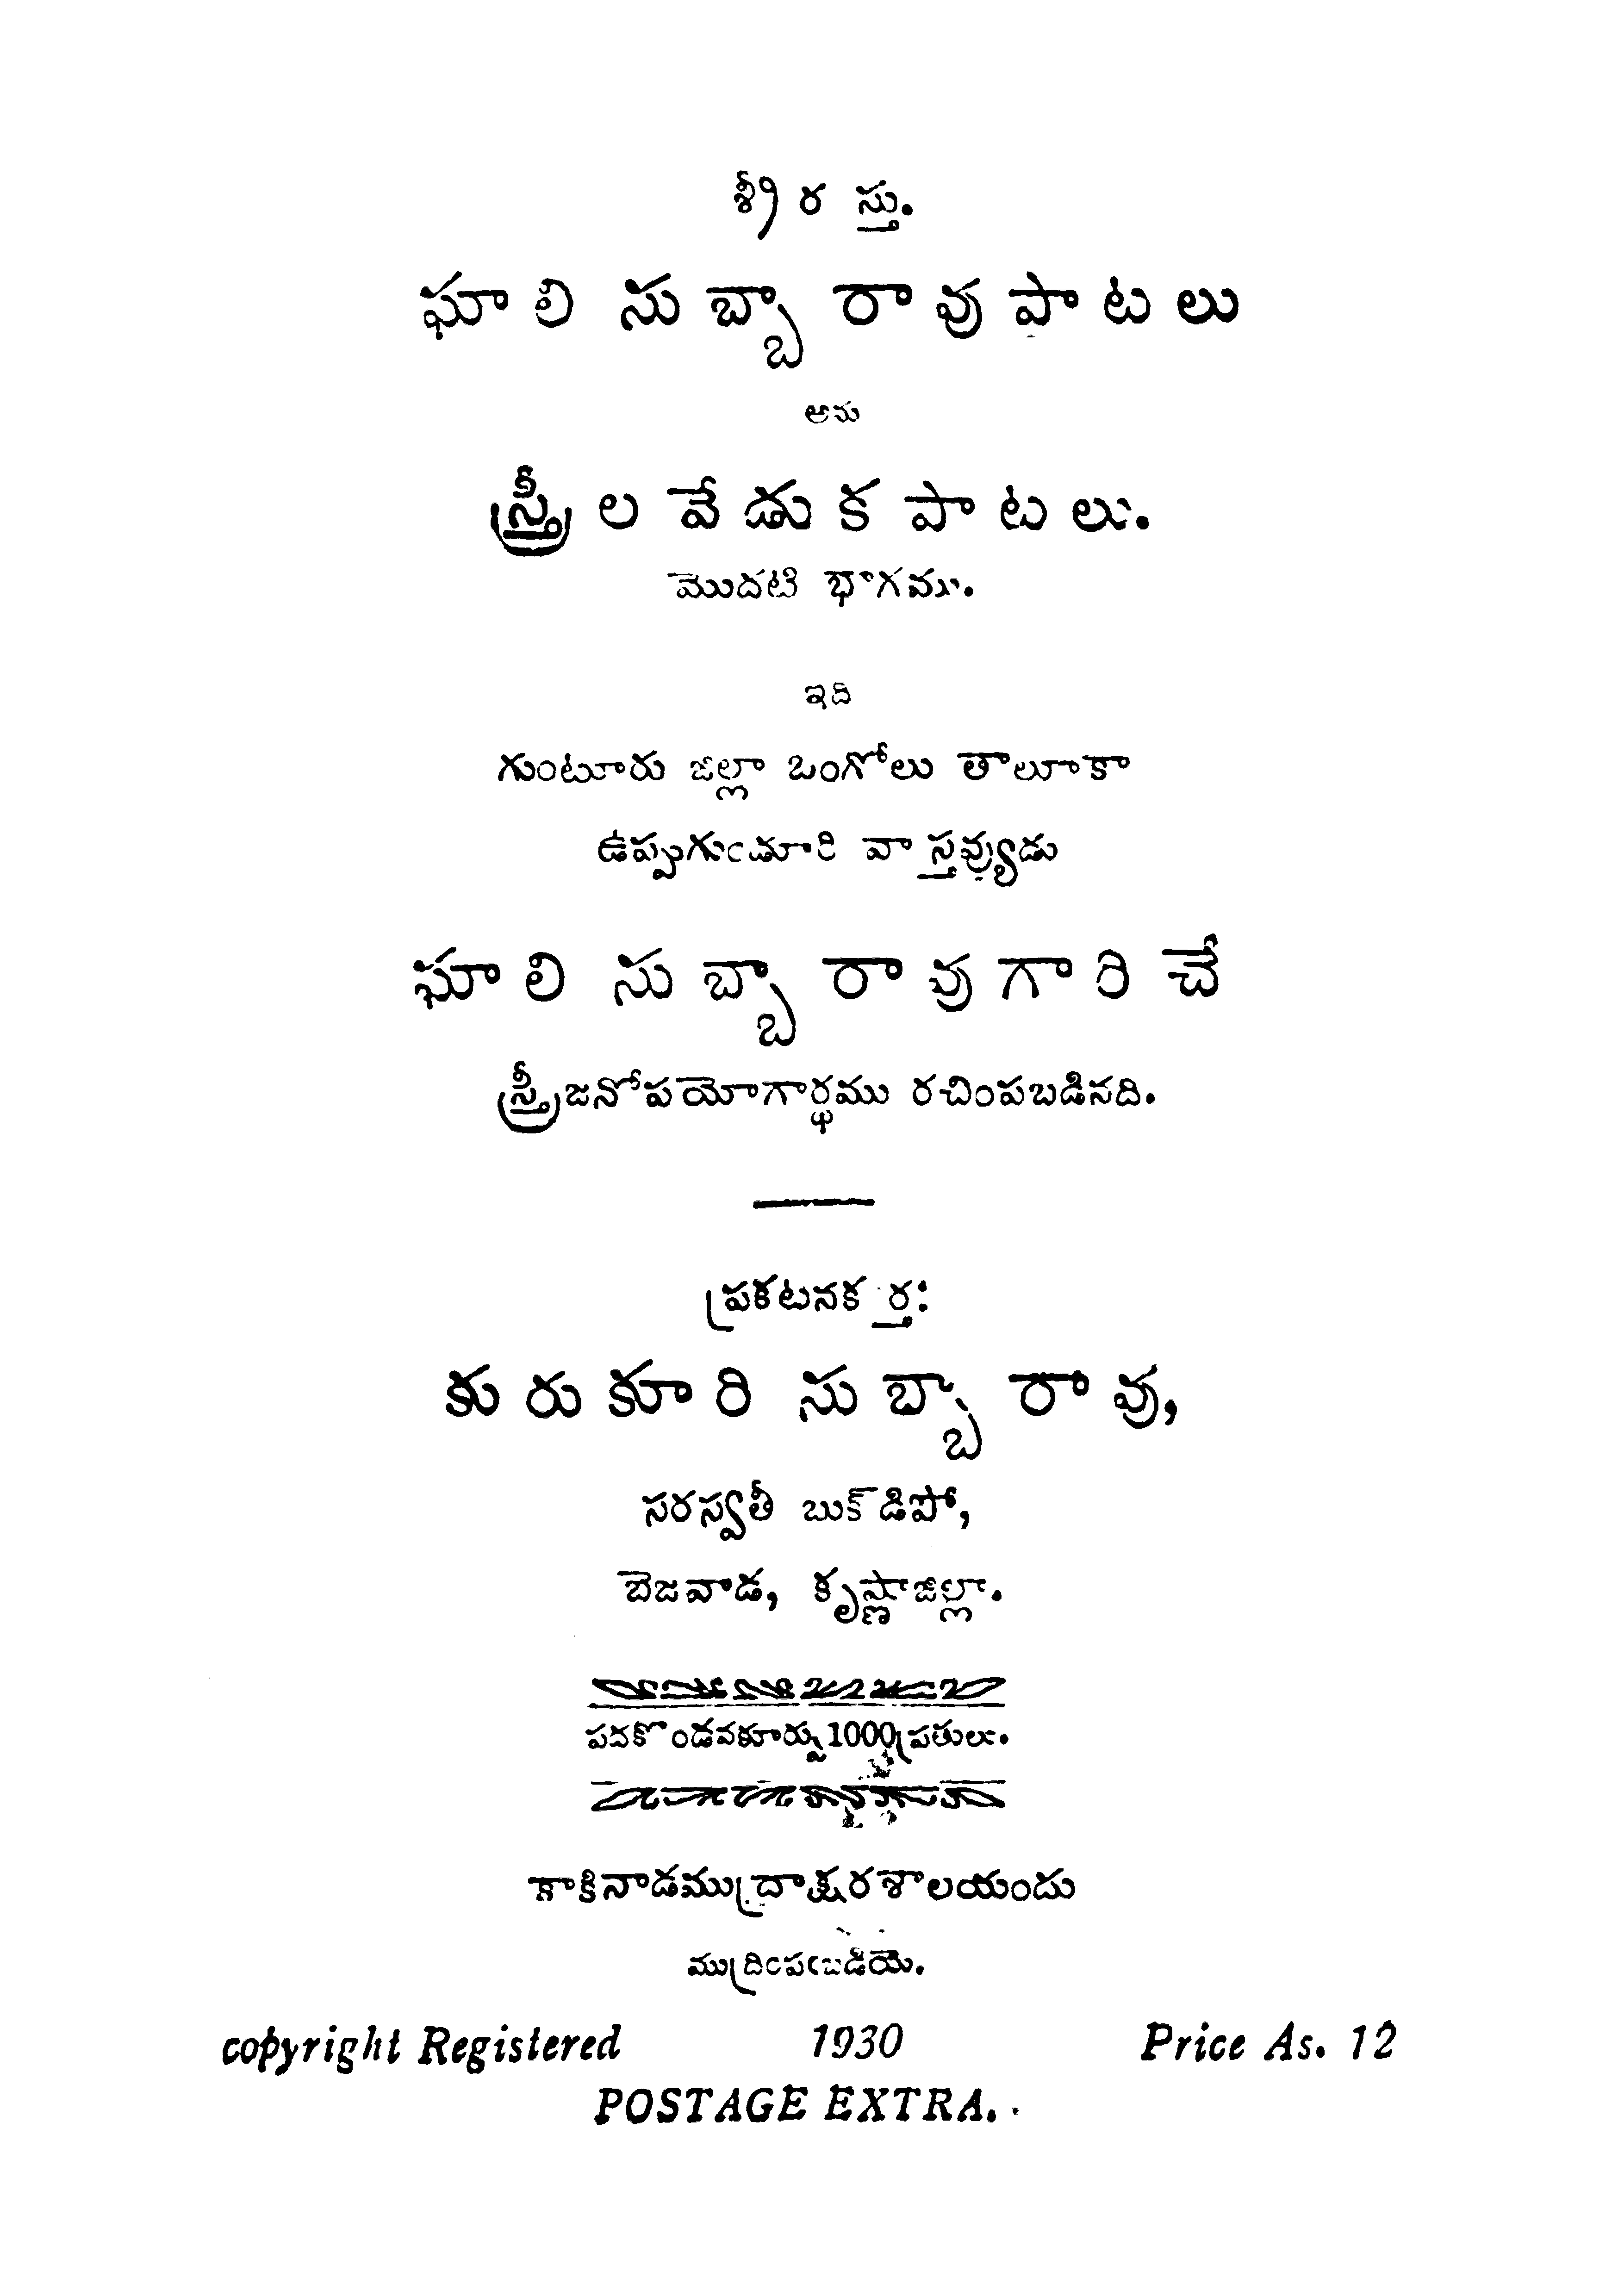 శ్రీరస్తు.
ఘాలి సుబ్బారావుపాటలు
అను
స్త్రీలవేడుకపాటలు.
మొదటి భాగము.
ఇది
గుంటూరు జిల్లా ఒంగోలు తాలూకా
ఉప్పుగుండూరి వాస్తవ్యుడు
ఘాలి సుబ్బారావుగారిచే
స్త్రీజనోపయోగార్థము రచింపబడినది.
ప్రకటనకర్త:
కురుకూరి సుబ్బారావు,
సరస్వతీ బుక్‌డిపో,
బెజవాడ, కృష్ణాజిల్లా.
పదకొండవకూర్పు 1000 ప్రతులు.
కాకినాడముద్రాక్షరశాలయందు
ముద్రింపఁబడియె.
copyright Registered 1930 Price As. 12
POSTAGE EXTRA.